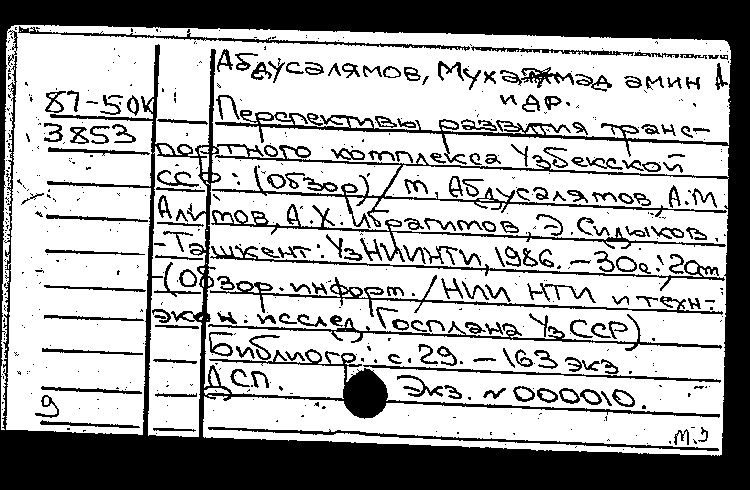 Абдусалямов, Мухаммад амин А
и др.
87-50к Перспективы развития транс-
3853 портного комплекса Узбекской
ССР: (Обзор) / М. Абдусалямов, А.М.
Алимов, А.Х. Ибрагимов, Э. Сидыков.
-Ташкент: УзНИИНТИ, 1986. - 30с.; 20см
(Обзор. информ. / НИИ НТИ и техн.-
экон. исслед. Госплана УзССР).
Библиогр.: с. 29. - 163 экз.
ДСП. Экз. № 000010.
9
м.э